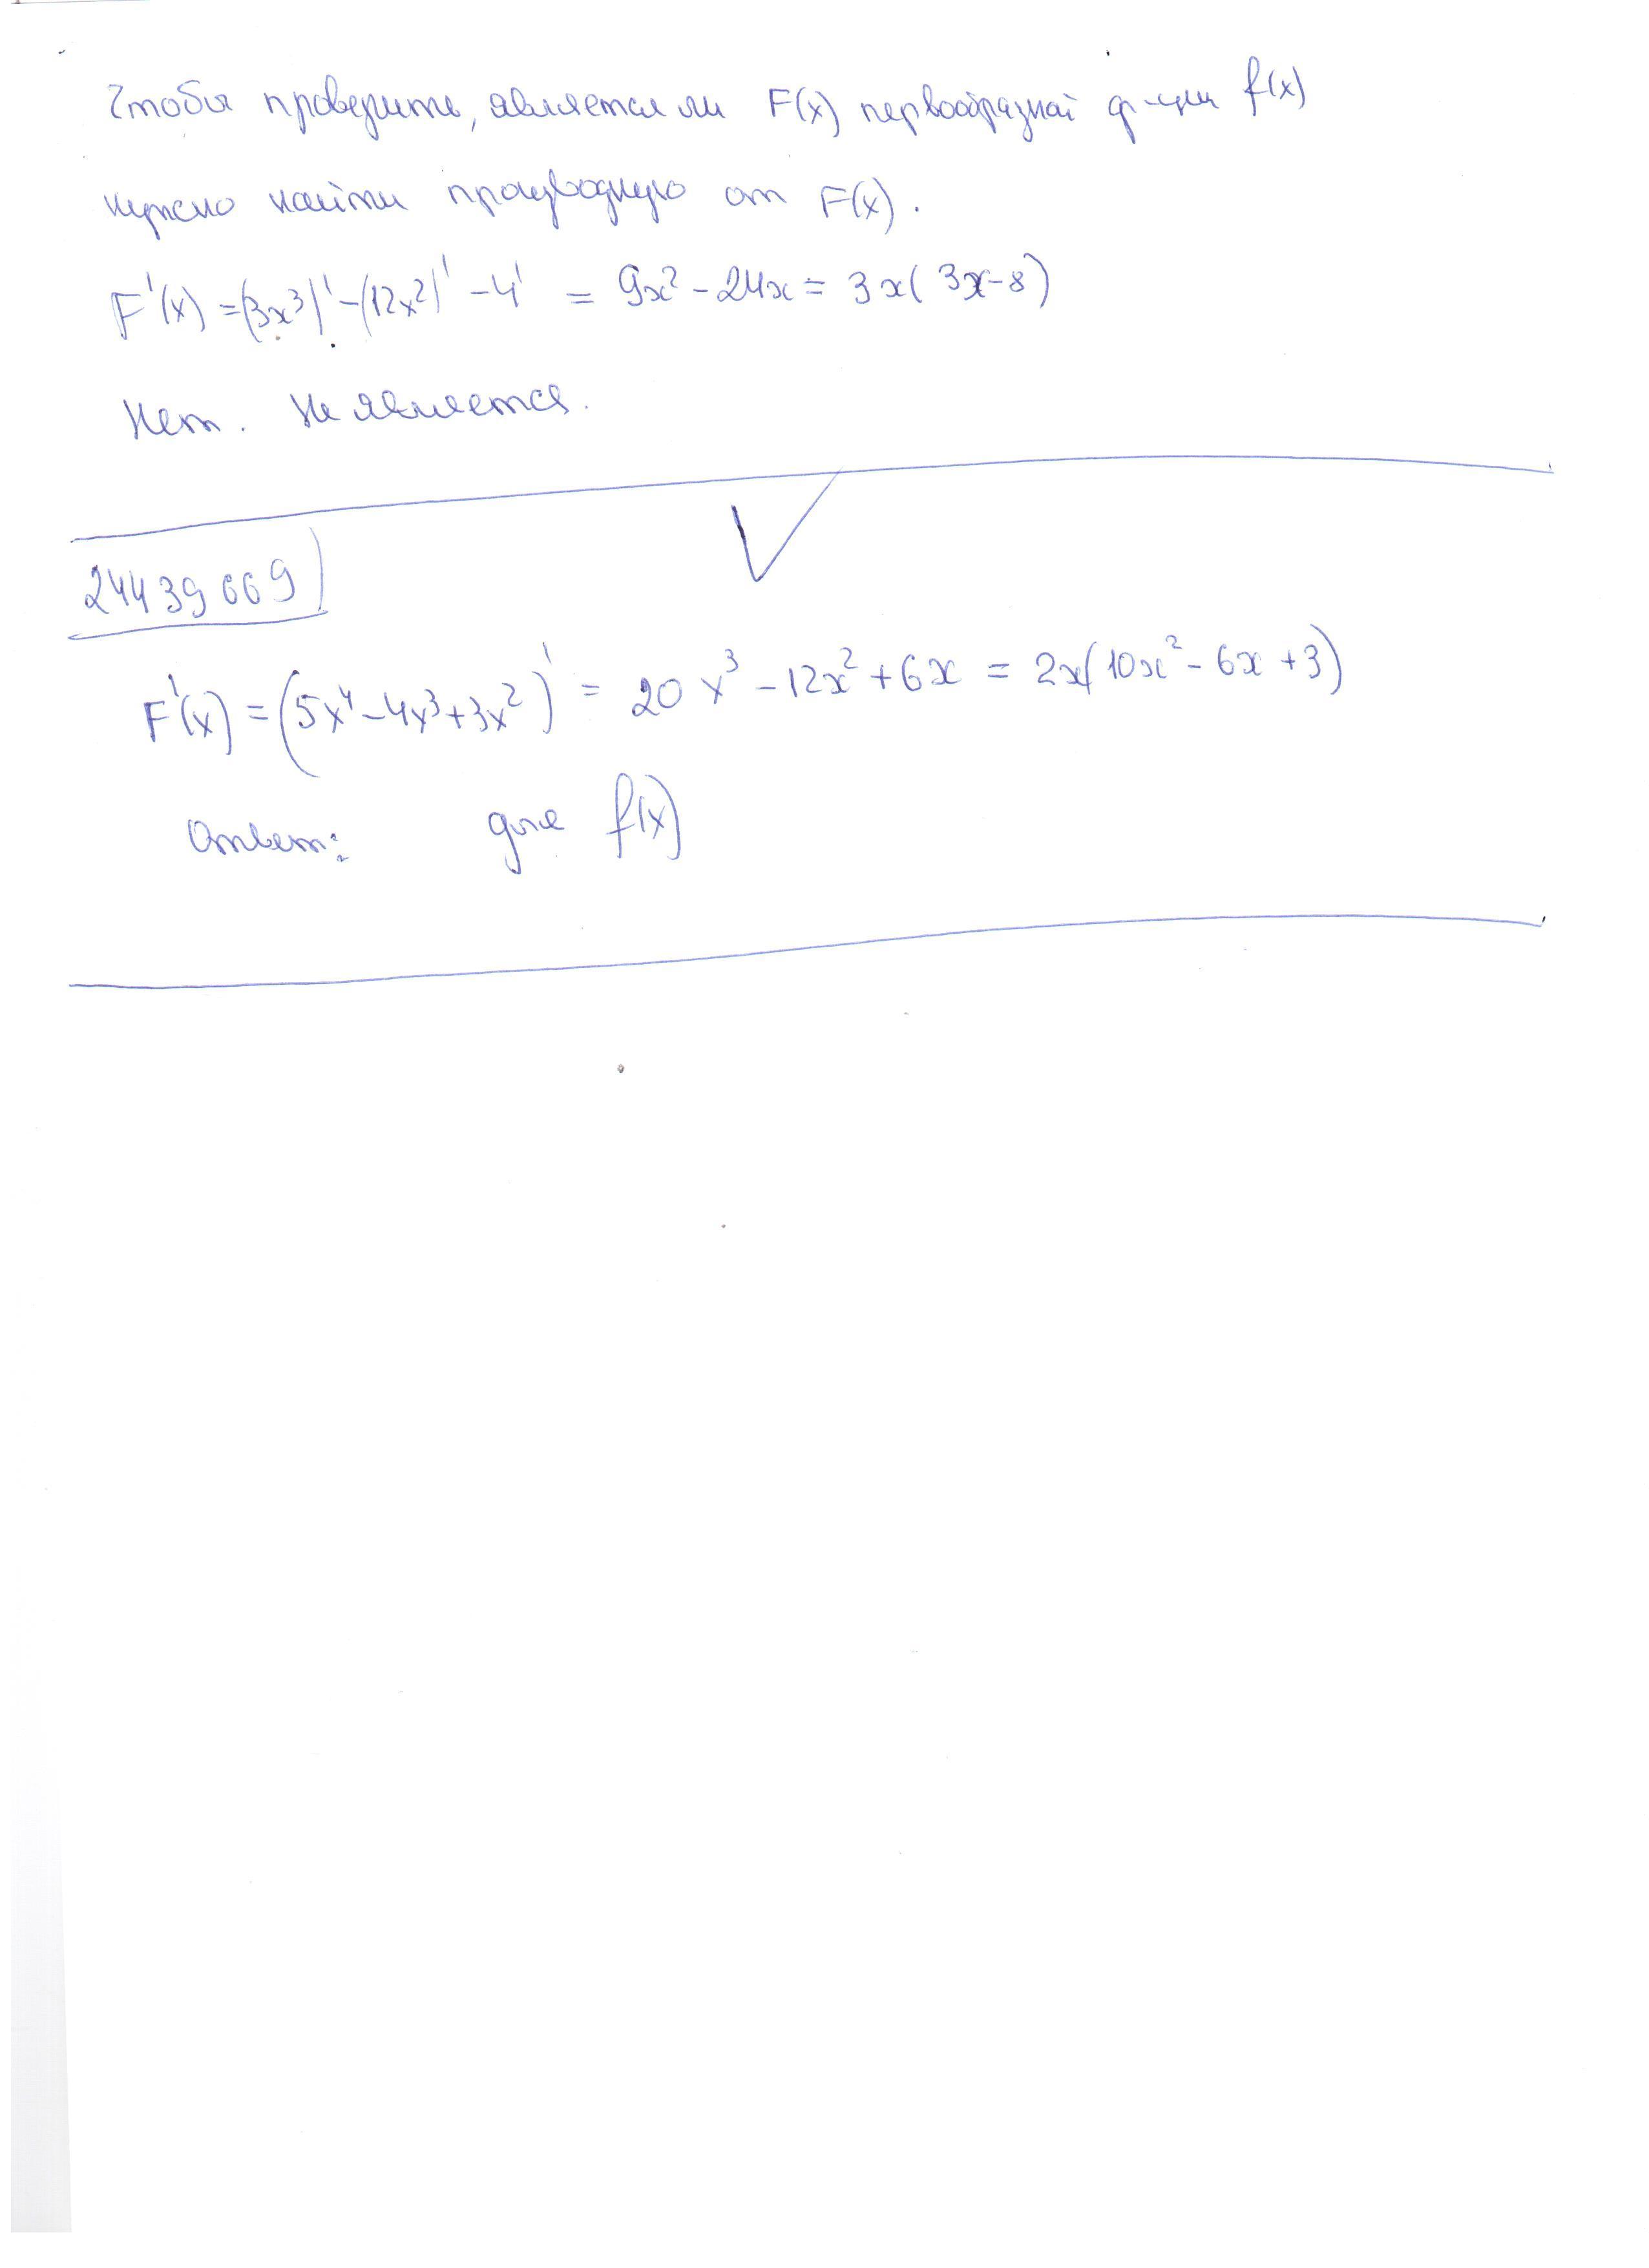 Чтобы проверить, является ли F(x) первообразной ф-ции f(x)
нужно найти производную от F(x).
F'(x) = (3x³)' - (12x²)' - 4' = 9x² - 24x = 3x(3x-8)
Нет. Не является.
24439669
F'(x) = (5x⁴ - 4x³ + 3x²)' = 20x³ - 12x² + 6x = 2x(10x² - 6x + 3)
Ответ: для f(x)